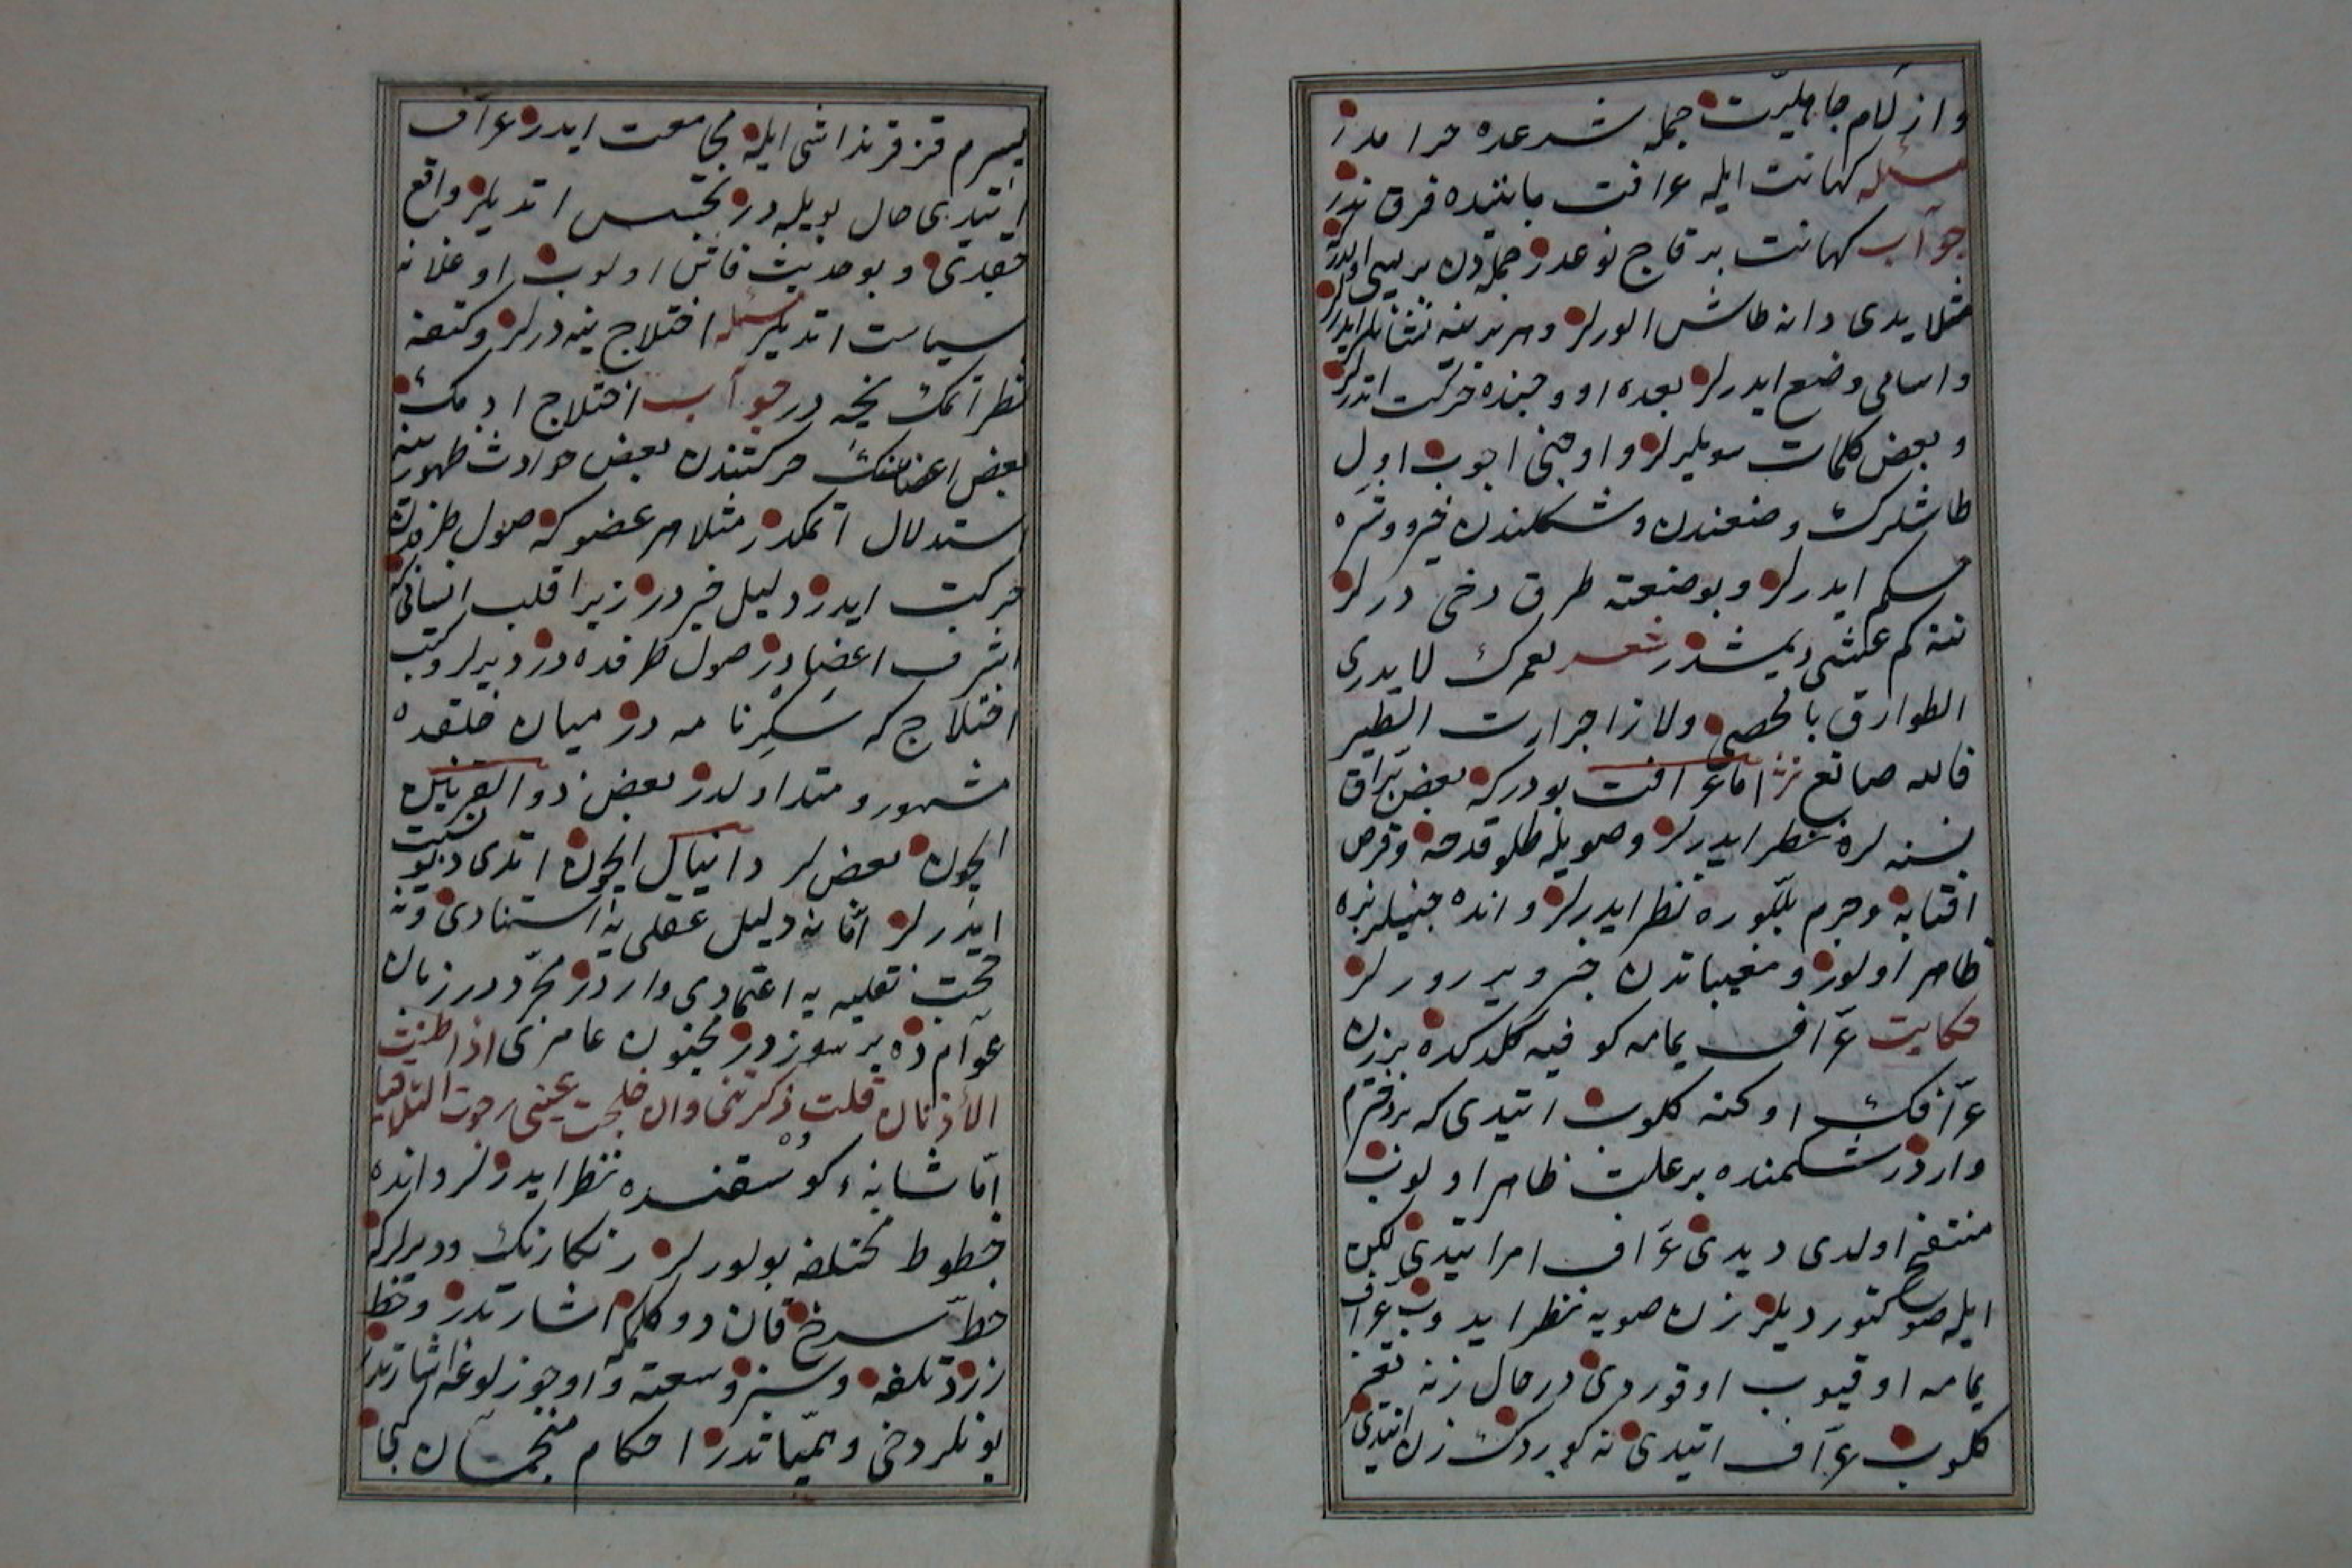 وازلام جاهليت جمله شرعده حرامدر
مسئله كهانت ايله عرافت مابيننده فرق ندر
جواب كهانت بر قاچ نوعدر جمله‌دن بريسى اولدركه
مثلا يدى دانه طاش الورلر وهر برينه نشانلر ايدرلر
واسامى وضع ايدرلر بعده اووجنده حركت اتدررلر
وبعض كلمات سويلرلر واوجنى اچوب اول
طاشلرك وضعندن وشكلندن خير وشره
حكم ايدرلر وبو صنعته طرق دخى درلر
نته كم عكشى ديمشدر شعر لعمرك لا يدرى
الطوارق بالحصى ولا زاجرات الطير
ما الله صانع نثر اما عرافت بودركه بعض براق
نسنه لره نظر ايدرلر وصويله طلو قدحه وقرص
افتابه وجرم بللوره نظر ايدرلر واندە
ظاهر اولور ومغيباتدن خبر ويررلر
حكايت عراف يمامه كوفيه كلدكده بر زن
عرافك اوكنه كلوب ايتدى كه بر دخترم
واردر شكمنده بر علت ظاهر اولوب
منتفخ اولدى ديدى عراف امر ايتدى لكن
ايله صو كتورديلر زن صويه نظر ايدوب عراف
يمامه اوقيوب اوفوردى در حال زنه تغير
كلوب عراف ايتدى نه كوردك زن ايتدى
پسرم قز قرنداشى ايله مجامعت ايدر عراف
ايتدى حال بويله در تجسس اتديلر واقع
چقدى وبو حديث فاش اولوب اوغلانه
سياست اتديلر مسئله اختلاج نيه درلر وكتفه
نظر اتمك نيجه در جواب اختلاج ادمك
بعض اعضاسنك حركتندن بعض حوادث ظهورينه
استدلال اتمكدر مثلا هر عضو كه صول طرفدن
حركت ايدر دليل خيردر زيرا قلب انسانى كه
اشرف اعضادر صول طرفده در ديرلر وكتب
اختلاج كه سكرنامه در ميان خلقده
مشهور ومتداولدر بعض ذو القرنين
ايچون بعضلر دانيال ايچون اتدى ديو نسبت
ايدرلر اما نه دليل عقلى يه استنادى ونه
حجت نقليه يه اعتمادى واردر مجرد در زبان
عوامده بر سوزدر مجنون عامرى اذا طنت
الاذنان قلت ذكرتنى وان خلجت عينى رجوت التلاقيا
اما شانهٔ كوسفنده نظر ايدرلر وانده
خطوط مختلفه بولورلر رنكارنك وديرلركه
خط سرخ قان دوكلمكه اشارتدر وخط
زرد تلفه وسبز وسعته واوجوزلوغه اشارتدر
بونلر دخى وهمياتدر احكام منجمان كبى